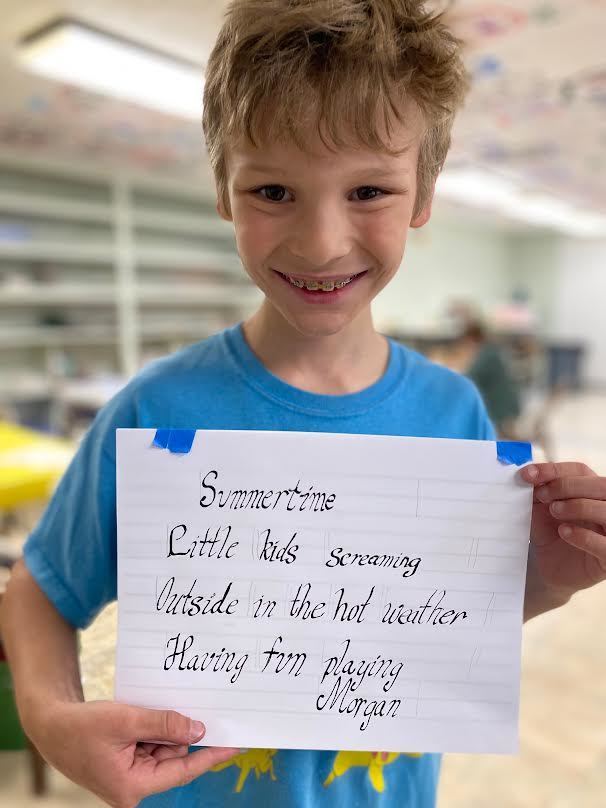 Summertime
Little kids screaming
Outside in the hot weather
Having fun playing
Morgan